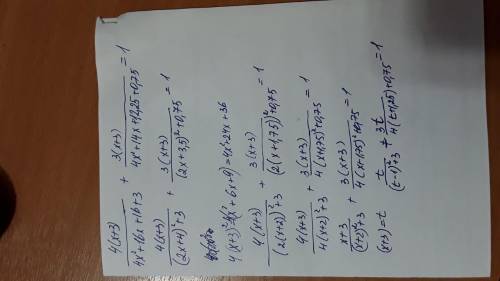 4(x+3)/(4x²+16x+16+3) + 3(x+3)/(4x²+14x+12,25+0,75) = 1
4(x+3)/((2x+4)²+3) + 3(x+3)/((2x+3,5)²+0,75) = 1
4(x+3)²=4(x²+6x+9)=4x²+24x+36
4(x+3)/((2(x+2))²+3) + 3(x+3)/((2(x+1,75))²+0,75) = 1
4(x+3)/(4(x+2)²+3) + 3(x+3)/(4(x+1,75)²+0,75) = 1
x+3/((x+2)²+3) + 3(x+3)/(4(x+1,75)²+0,75) = 1
(x+3)=t t/((t-1)²+3) + 3t/(4(t+1,25)+0,75) = 1